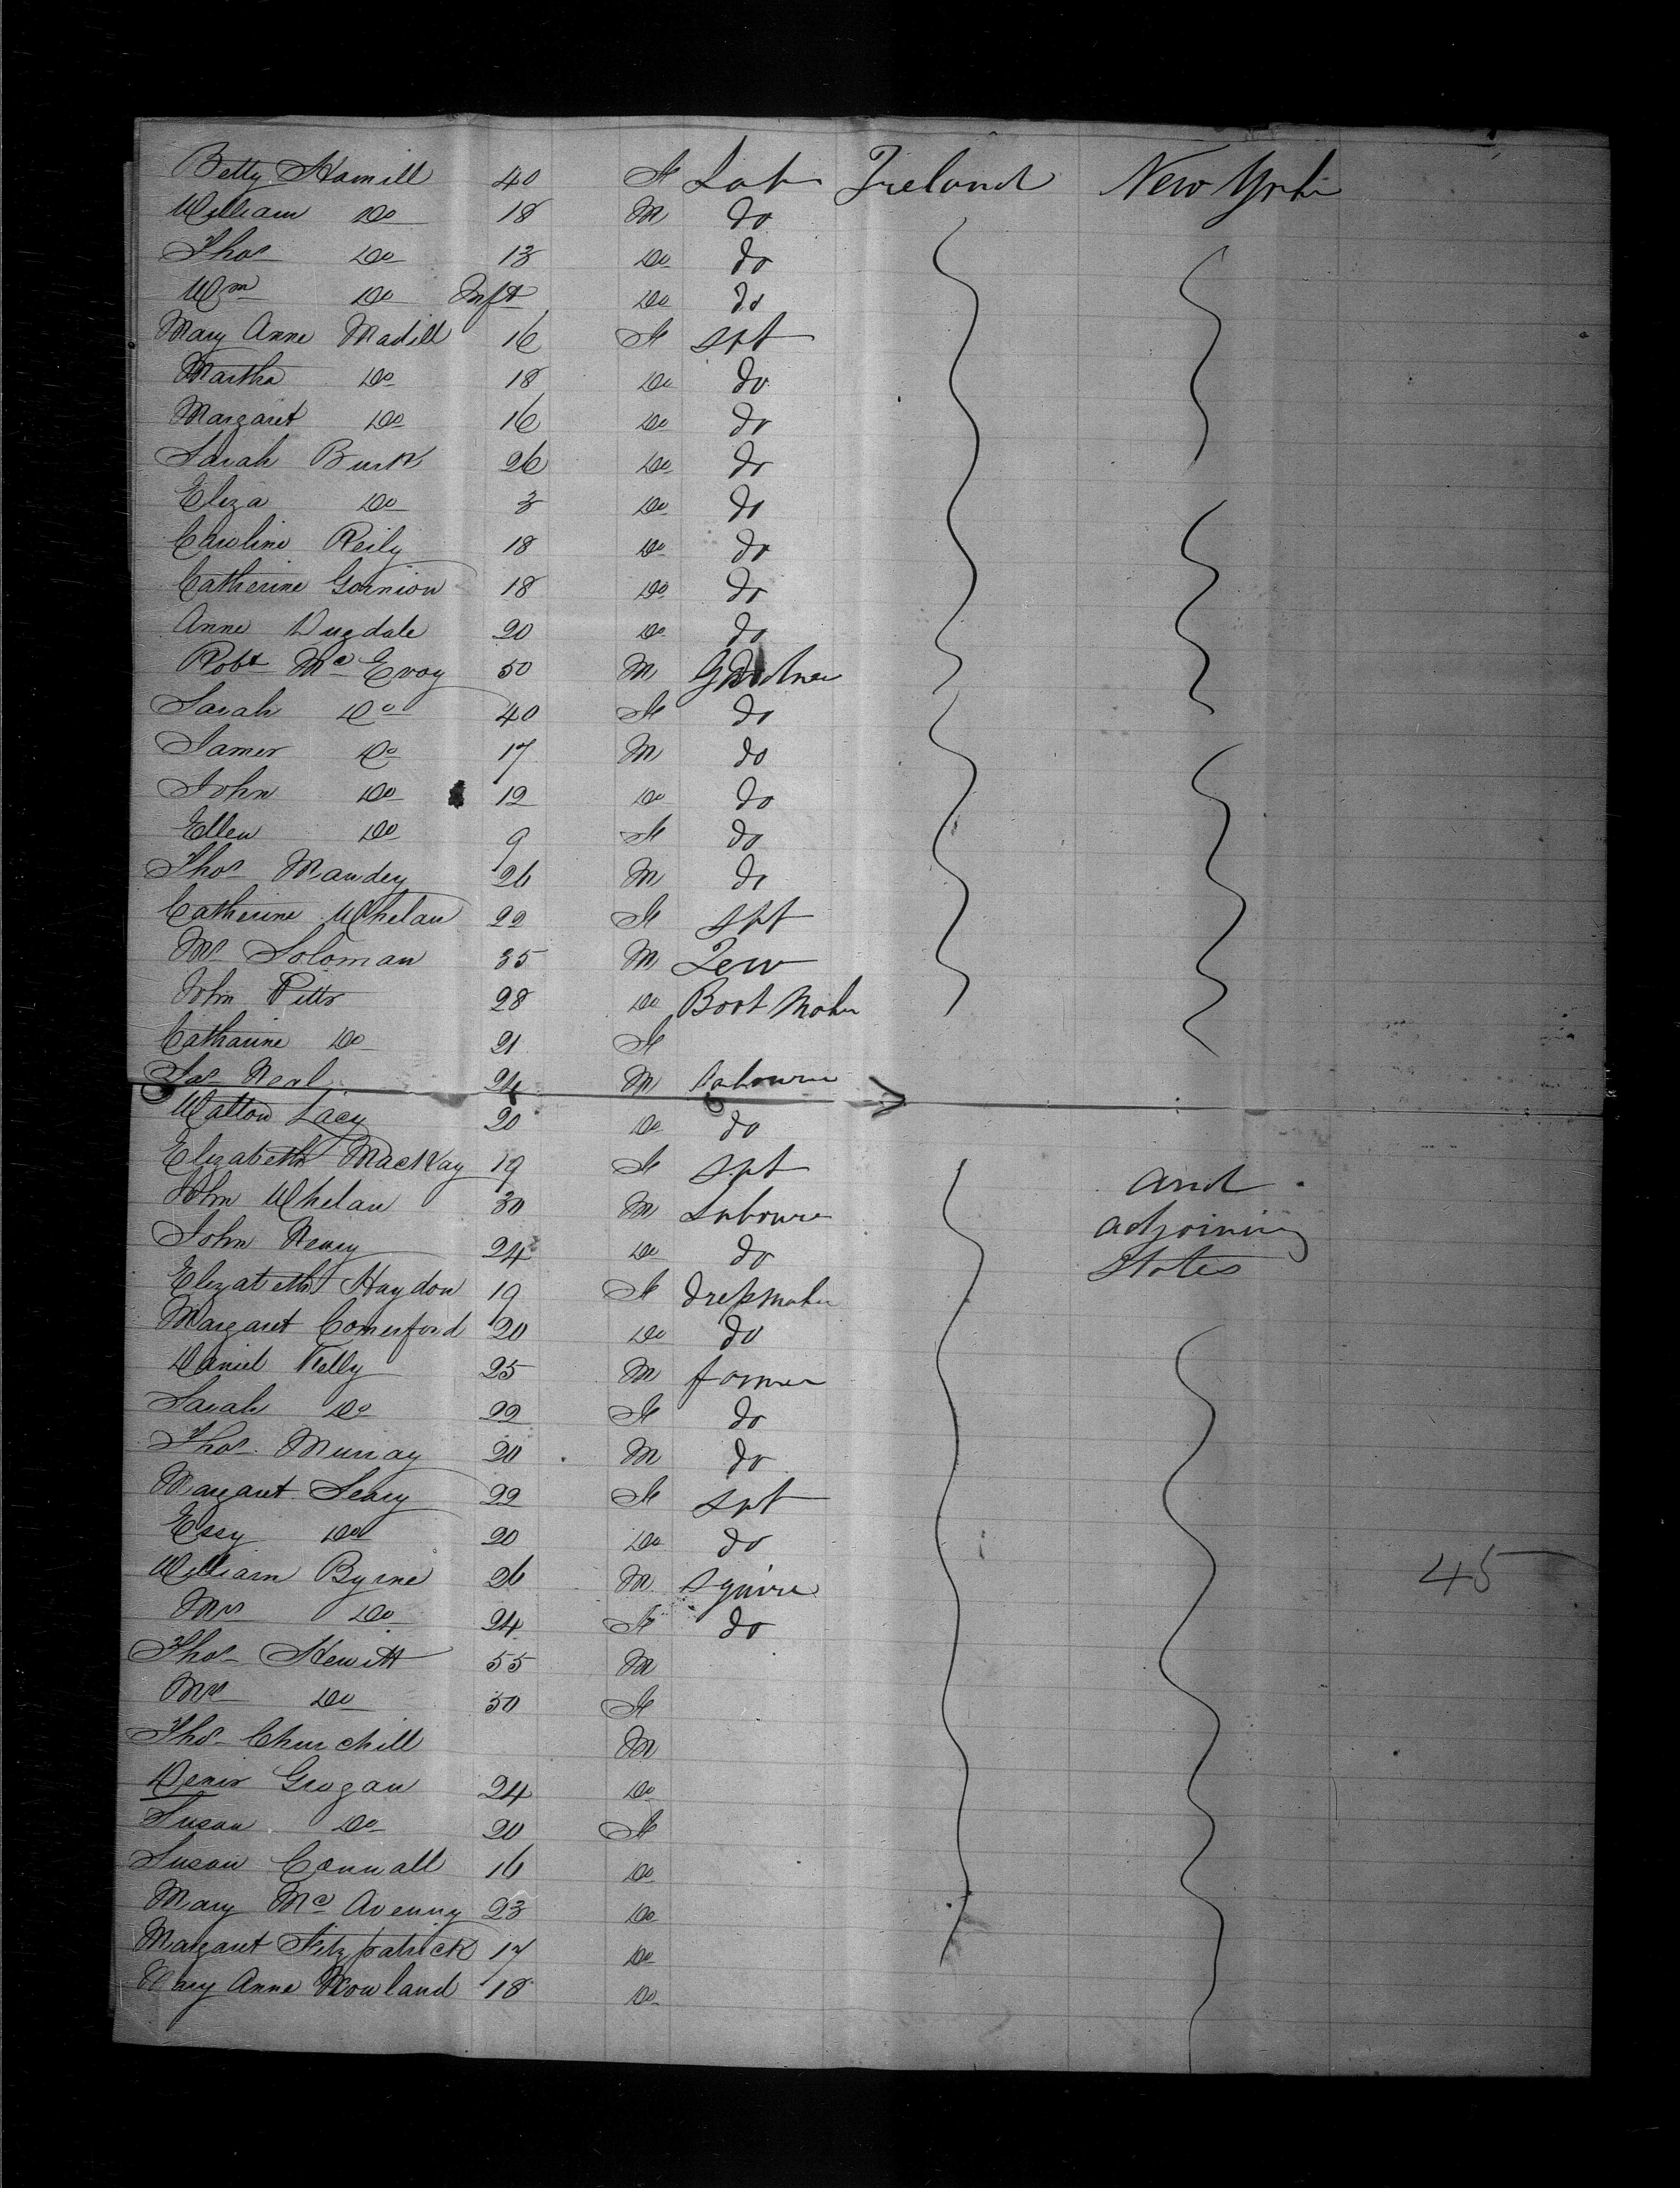 Betty Hamill 40 F Lab Ireland New York
William Do 18 M do
Thos Do 13 Do do
Wm Do Inft Do do
Mary Anne Madill 16 F Spt
Martha Do 18 Do do
Margaret Do 16 Do do
Sarah Burk 26 Do do
Eliza Do 3 Do do
Caroline Reily 18 Do do
Catherine Gornion 18 Do do
Anne Dugdale 20 Do do
Robt Mc Evoy 50 M
Sarah Do 40 F do
James Do 17 M do
John Do 12 Do do
Ellen Do 9 F do
Thos Mandey 26 M do
Catherine Whelan 22 F Spt
Mr Soloman 35 M Jew
John Pitts 28 Do Boot Maker
Catharine Do 21 F
Jas Neal 24 M Labourer
Walton Lacy 20 Do do
Elizabeth MacKay 19 F Spt and
John Whelan 30 M Labourer adjoining
John 24 Do do States
Elizabeth Haydon 19 F dressmaker
Margaret Comerford 20 Do do
Daniel Kelly 25 M farmer
Sarah Do 22 F do
Thos. Murray 20 M do
Margaret Leary 22 F Spt
Essy Do 20 Do do
William Byrne 26 M Squire 45
Mrs Do 24 F do
Thos Hewitt 55 M
Mrs Do 50 F
Thos Churchill M
Denis Grogan 24 Do
Susan Do 20 F
Susan Connall 16 Do
Mary Mc Avenny 23 Do
Margaret Fitzpatrick 17 Do
Mary Anne Rowland 18 Do